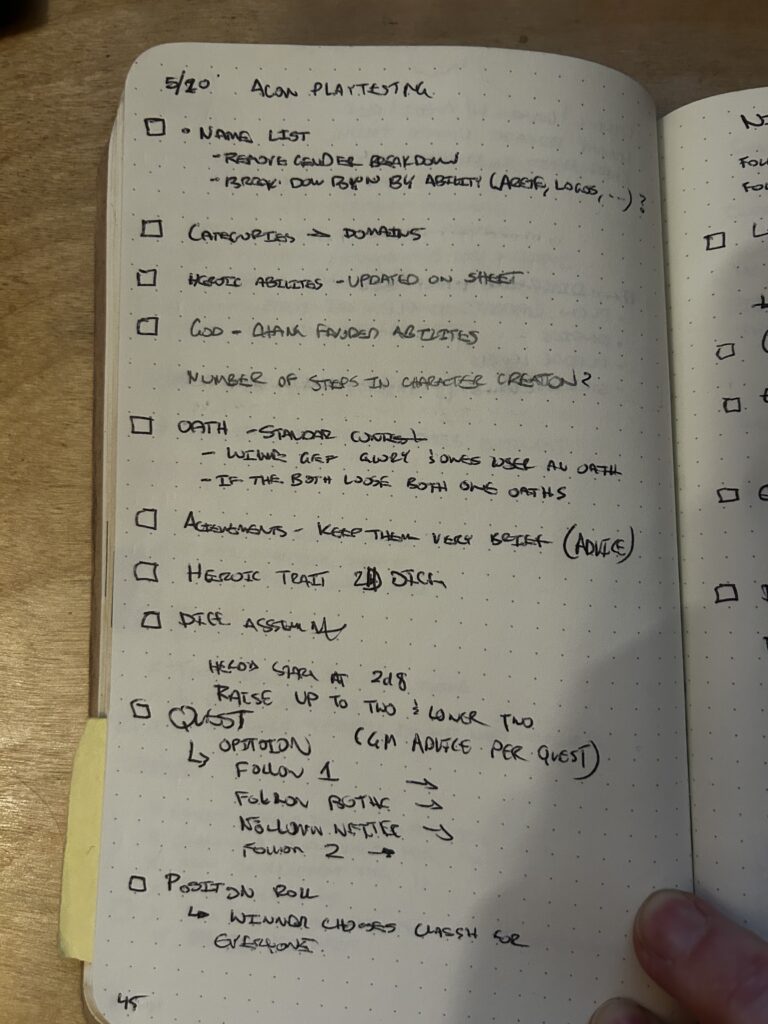 5/20 AGON PLAYTESTING
NAME LIST
- REMOVE GENDER BREAKDOWN
- BREAK DOW BY ABILITY (ARETE, LOGOS, ...)?
CATEGORIES → DOMAINS
HEROIC ABILITES - UPDATED ON SHEET
GOD - ABILITES
NUMBER OF STEPS IN CHARACTER CREATION?
OATH - STANDAR CONTEST
- GET GLORY & OWES LOSER AN OATH
- IF THE BOTH LOOSE BOTH OWE OATHS
ACIEVEMENTS - KEEP THEM VERY BRIEF (ADVICE)
HEROIC TRAIT DICE
DICE
START AT 2d8
RAISE UP TO TWO & LOWER TWO
QUEST
↳ (GM ADVICE PER QUEST)
FOLLOW 1 →
FOLLOW BOTH →
→
FOLLOW 2 →
POSITON ROLL
↳ WINNER CHOSES CLASH FOR
EVERYONE.
45